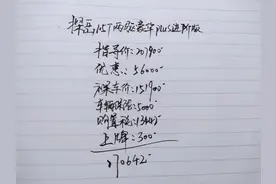 探岳1.5T两驱豪华plus进阶版
指导价:207900
优惠:56000
裸车价:151900
车辆保险:5000
购置税:13442
上牌:300
170642